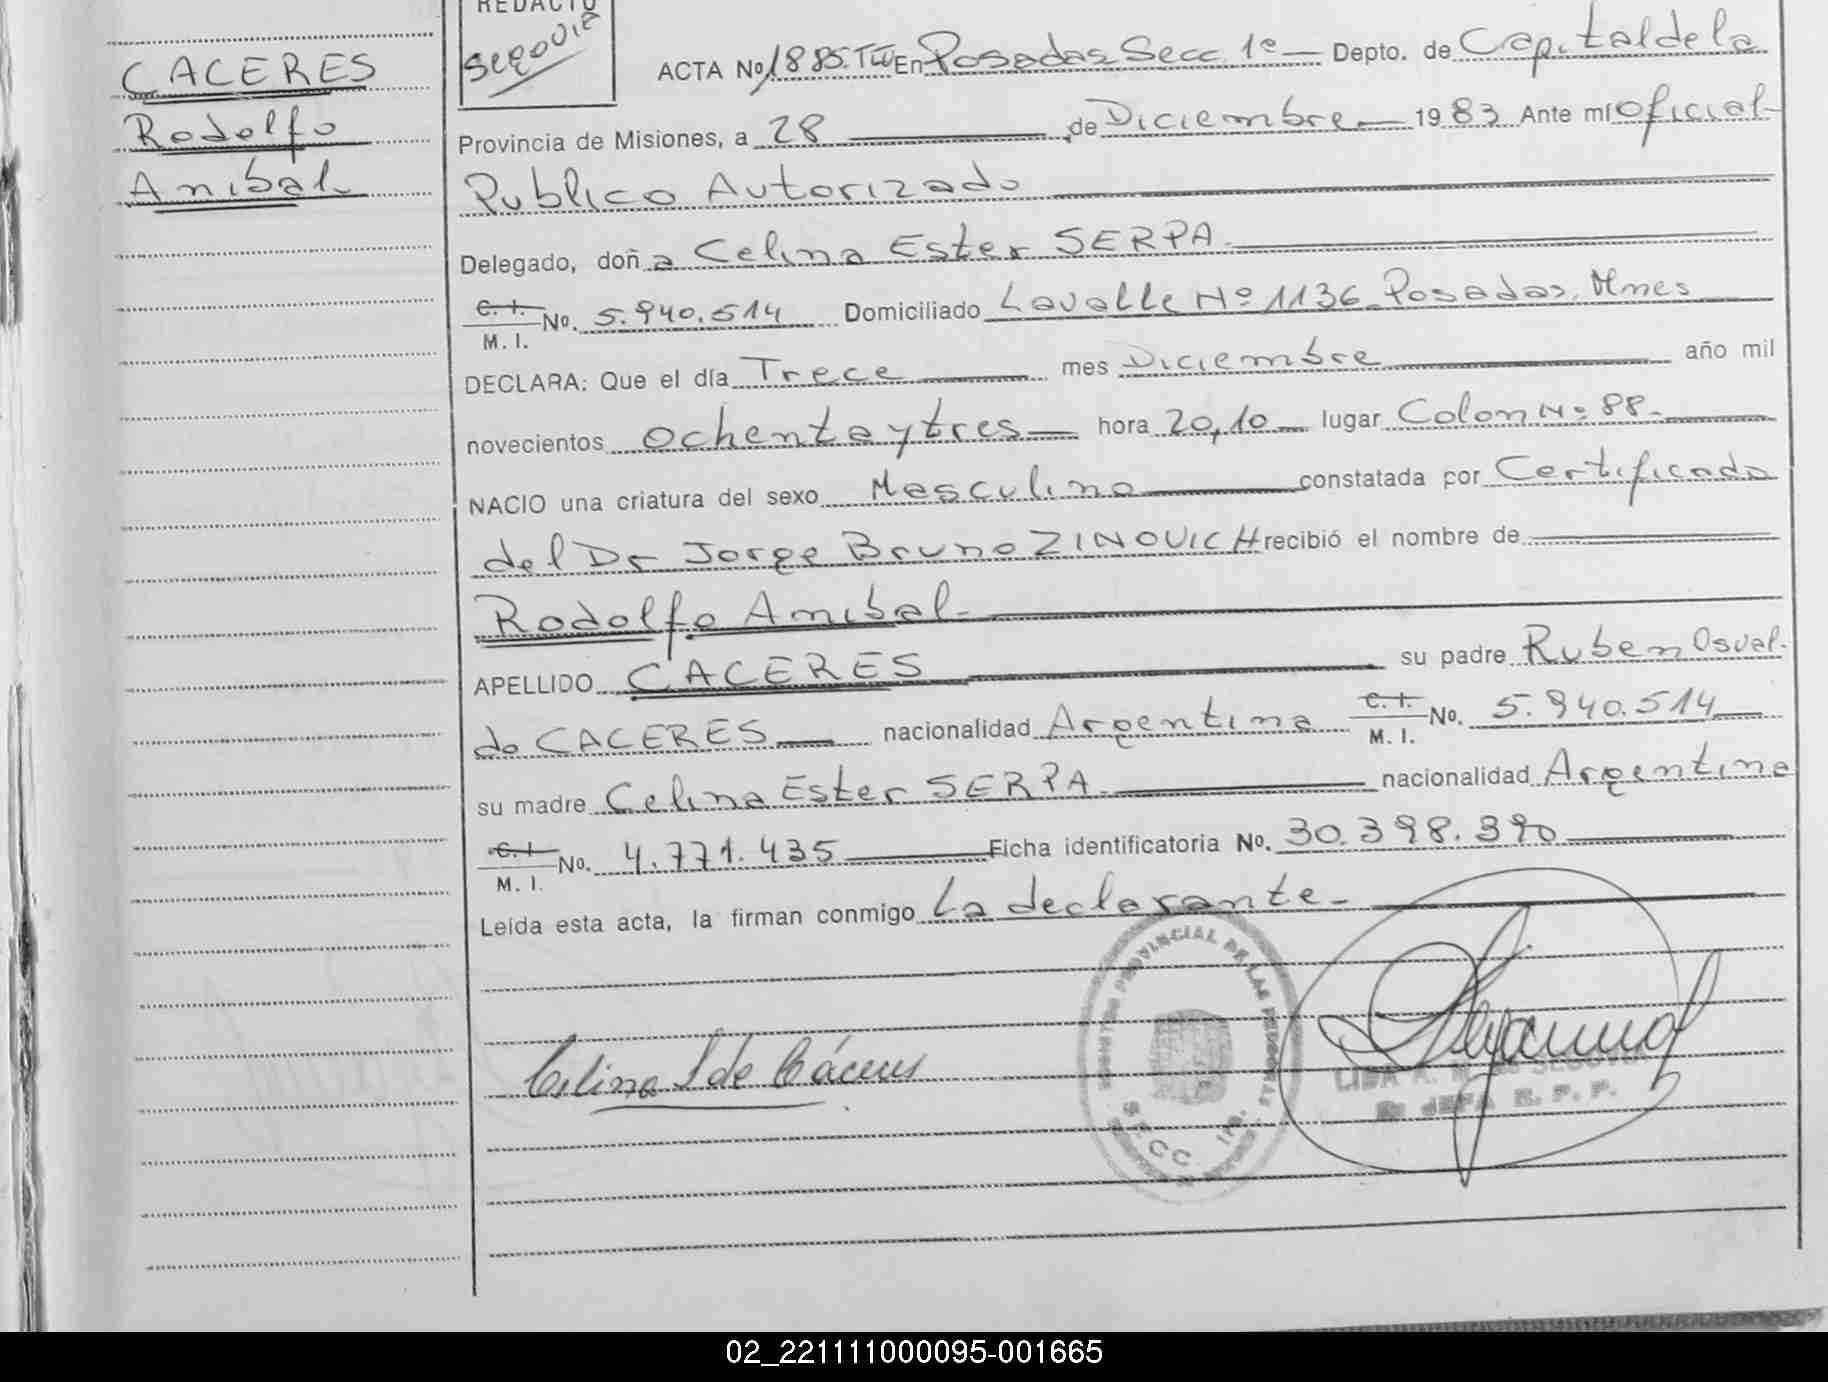 REDACTO
SEGOVIA
CACERES
Rodolfo
Anibal
ACTA No 1885. TIV En Posadas Secc. 1º Depto. de Capital de la
Provincia de Misiones, a 28 de Diciembre 1983 Ante mí Oficial
Publico Autorizado
Delegado, doña Celina Ester SERPA
C. I. M. I. No. 5.940.514 Domiciliado Lavalle Nº 1136. Posadas, Mnes
DECLARA: Que el día Trece mes Diciembre año mil
novecientos Ochenta y tres hora 20,10 lugar Colon Nº 88.
NACIO una criatura del sexo Masculino constatada por Certificado
del Dr Jorge Bruno ZINOVICH recibió el nombre de
Rodolfo Anibal
APELLIDO CACERES su padre Ruben Osval-
do CACERES nacionalidad Argentina C. I. M. I. No. 5.940.514
su madre Celina Ester SERPA nacionalidad Argentina
C. I. M. I. No. 4.771.435 Ficha identificatoria No. 30.398.390
Leída esta acta, la firman conmigo La declarante.
PROVINCIAL DE LAS PERSONAS
SECC. 1ra.
Celina S de Cáceres
JEFA R. P. P.
02_221111000095-001665